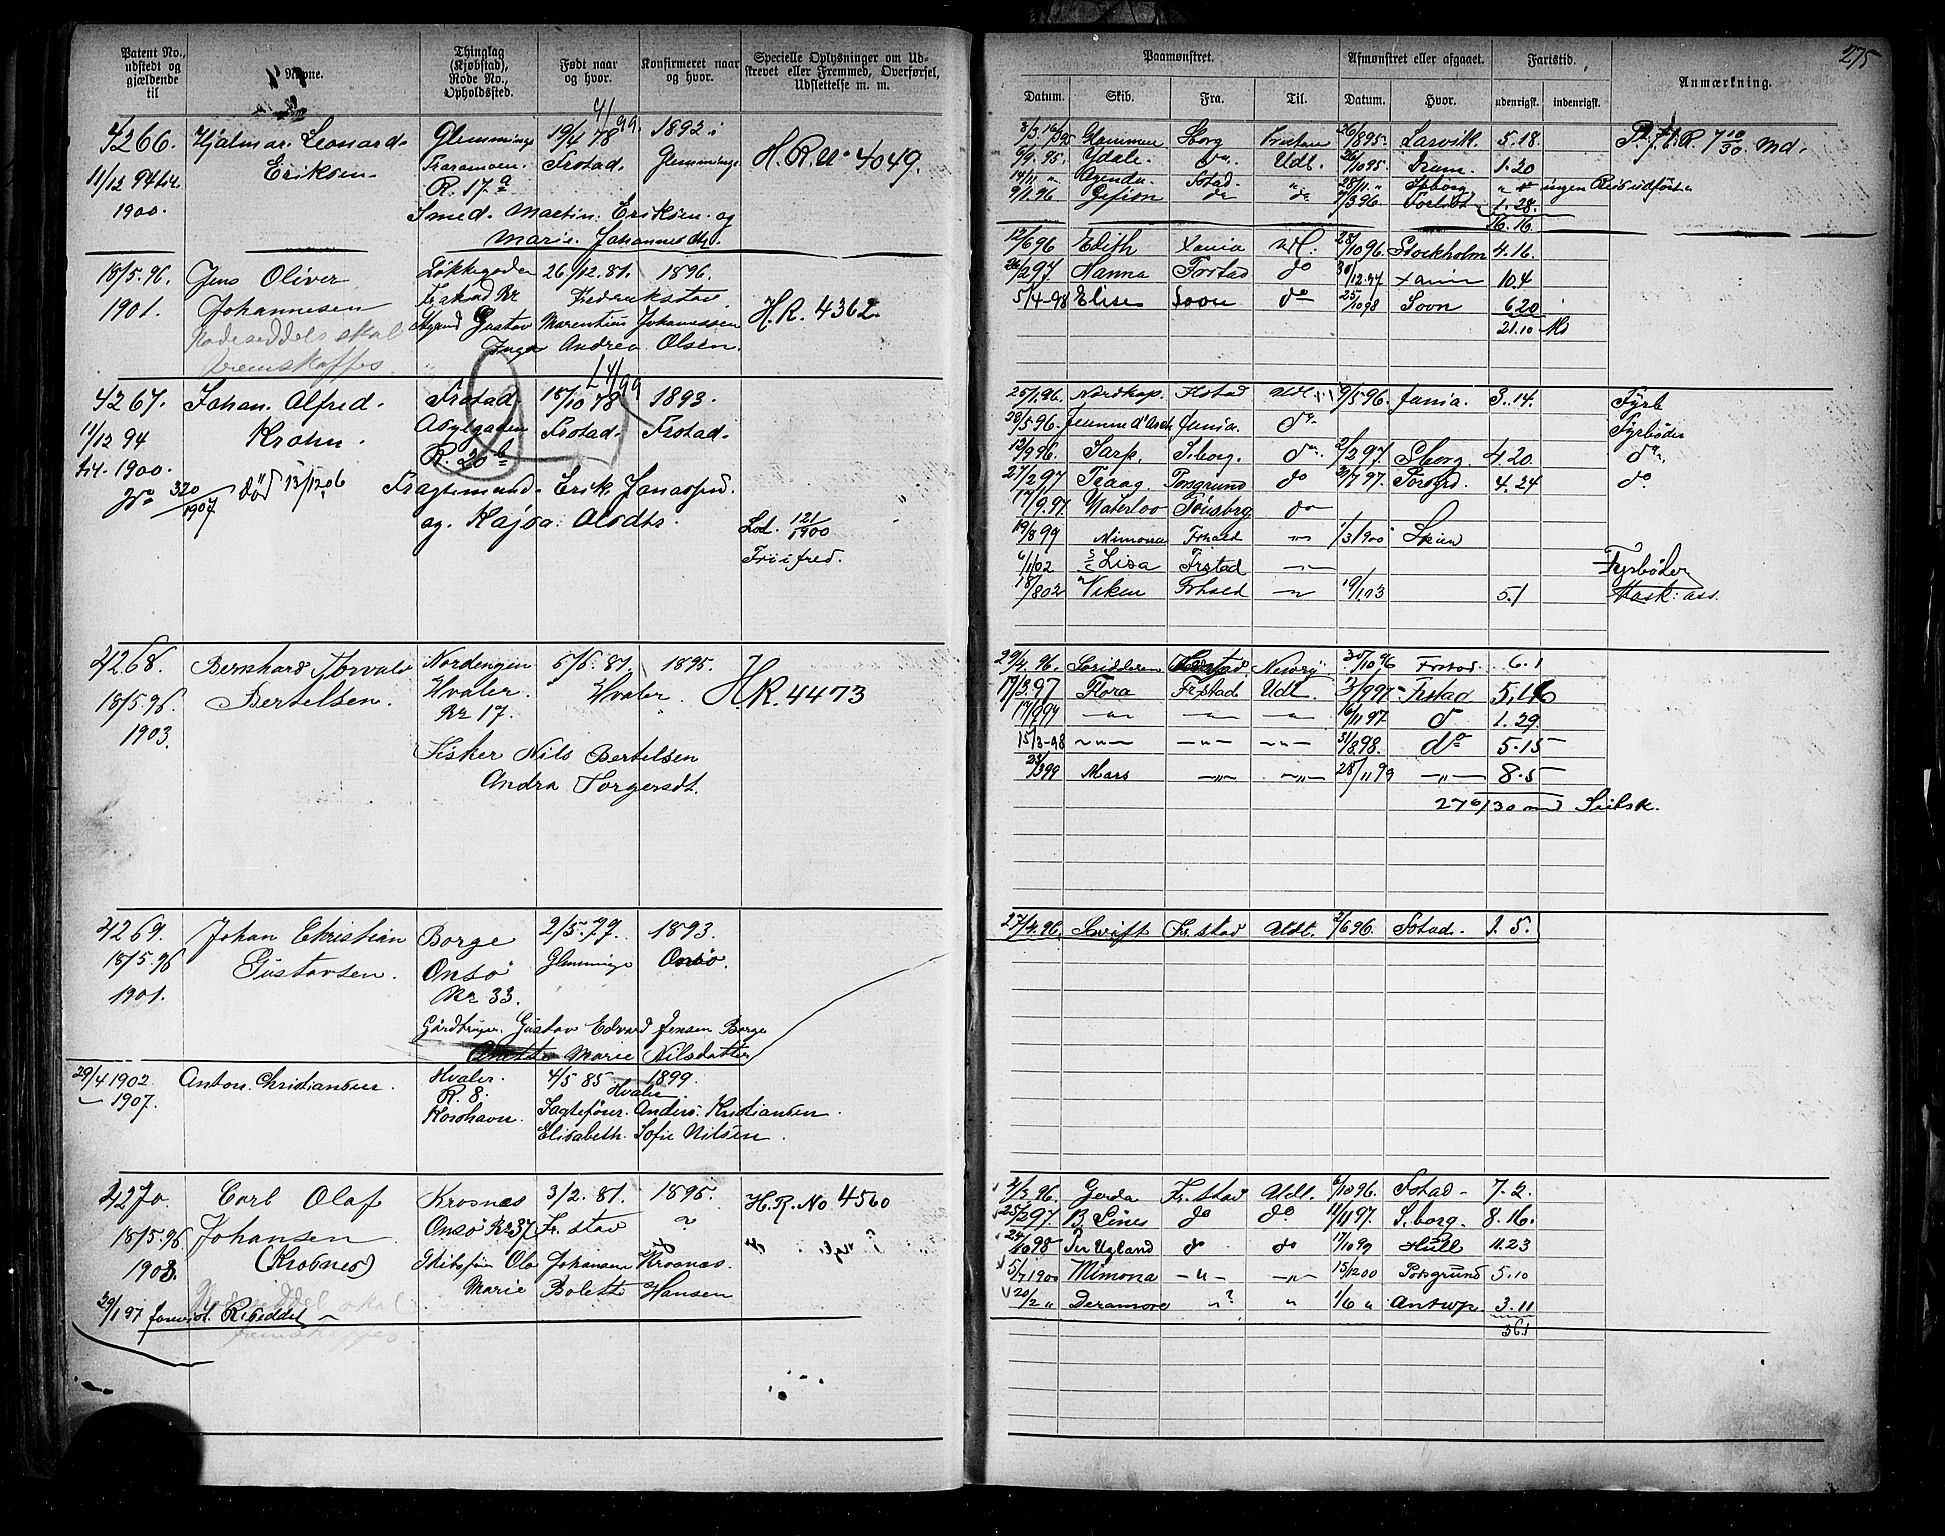 275
Patent No., udstedt og gjældende til
Navne.
Thinglag (Kjøbstad), Rode No., Opholdssted.
Født naar og hvor.
Konfirmeret naar og hvor.
Specielle Oplysninger om Udskrevet eller Fremmed, Overførsel, Udslettelse m. m.
Paamønstret.
Afmønstret eller afgaaet.
Fartstid.
Anmærkning.
Datum. Skib. Fra. Til. Datum. Hvor. udenrigsk. indenrigsk.
4266. Hjalmar Leonard Glemminge 19/4 78 1892 i
Eriksen Frstad. Glemminge H. R. No 4049.
11/12 94 til R. 17 a
1900. Smed. Martin Eriksen og
Marie Johannesdtr.
Sborg 26/8 95. Larvik. 5.18.
9/9. 95. Ydale. do. Udl. Dram. 1.20
9/1.96 Gefion do do 1.28.
16.16
18/5.96. Jens Oliver Løkkegaden 26/12.81. 1896.
1901. Johannesen Fr.stad Rr Fredrikstad H. R. 4362.
Rodeseddel skal Gustav Marentius Johannessen
fremskaffes Inga Andrea Olsen.
12/6 96 Edith Xania Udl: 28/10 96. Stockholm 4.16.
Nanna Frstad do Xania 10.4
5/4-98 Elise Soon do 25/10 98 Soon 6.20
21.10 Md
4267. Johan Alfred Frstad 18/10 78 1893.
11/12 94 Krohn. Asylgaden Frstad. Frstad.
til. 1900. R. 20 b
No 320/1907 død 13/12 06 Fragtemand Erik Jonassen
og Kajsa Olsdtr. Lod. 121/1900
Fri i fred.
25/1.96. Nordkap. Frstad Udl 9/5 96. Xania. 3.14. Fyrb
29/5 96. Jeanne d'Arch Xania. do Fyrbøder
12/9 96. Sarp. S.borg. do 2/2 97. Sborg. 4.20. do
27/2 97 Traag. Porsgrund do 2/7 97. Porsgrd. 4.24 do
17/9.97. Waterloo Tønsberg do
19/8 99 Mimona Frhald 1/3 1900 Skien
6/1 02 Lisa Frstad Fyrbøder
18/8 02 Viken Frhald 19/1.03 5.1 Mask: ass.
4268. Bernhard Torvald Nordengen 5/5.81. 1895.
18/5.96 Bertelsen. Hvaler. Hvaler H.R. 4473
1903. Rr 17.
Fisker Nils Bertelsen
Andra Torgersdt.
29/4.96. Soridderen Frstad Newry 30/10 96 Frstad. 6.1
19/3.97 Flora Fr.stad Udl. 2/9 97 Frstad 5,16
17/9 97 16/11 97 do 1.29.
15/3-98 31/8.98. do 5.15
Mars 28/11 99 8.5
27 6/30 md Seilsk.
4269. Johan Christian Borge 2/5.77. 1893.
18/5.96 Gustavsen. Onsø Glemminge Onsø.
1901. Rr 33.
Gårdbruger. Gustav Edvard Jensen Borge
Anette Marie Nilsdatter
27/4.96. Swift Fr.stad Udl. 2/6 96. Fstad. 1.5.
29/4 1902 Anton Christiansen. Hvaler. 4/5 85 1899.
1907. R. 8. Hvaler.
Korshavn. Anders Kristiansen.
Elisabeth Sofie Nilsen.
4270. Carl Olaf Krosnæs 3/2.81. 1895. H.R. No 4560
18/5.96 Johansen Onsø Rr 37 Fr.stad
1903. (Krosnes) Ole Johansen Krosnæs.
Marie Bolette Hansen
29/1 97 Rseddel
2/3.96. Gerda Fr.stad Udl. 6/10 96. Fstad 7.2.
25/2 97. B. Lines do do 11/11 97. S.borg. 8.16.
24/10 98 Per Ugland do do 17/10 99 Hull 11.23
5/7 1900 Mimona 15/12 00 Porsgrund 5.10
20/2 " Deramore " " 1/6 " Antwp 3.11
36.1